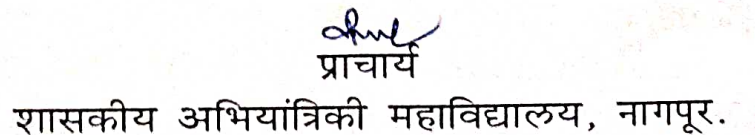 प्राचार्य
शासकीय अभियांत्रिकी महाविद्यालय, नागपूर.